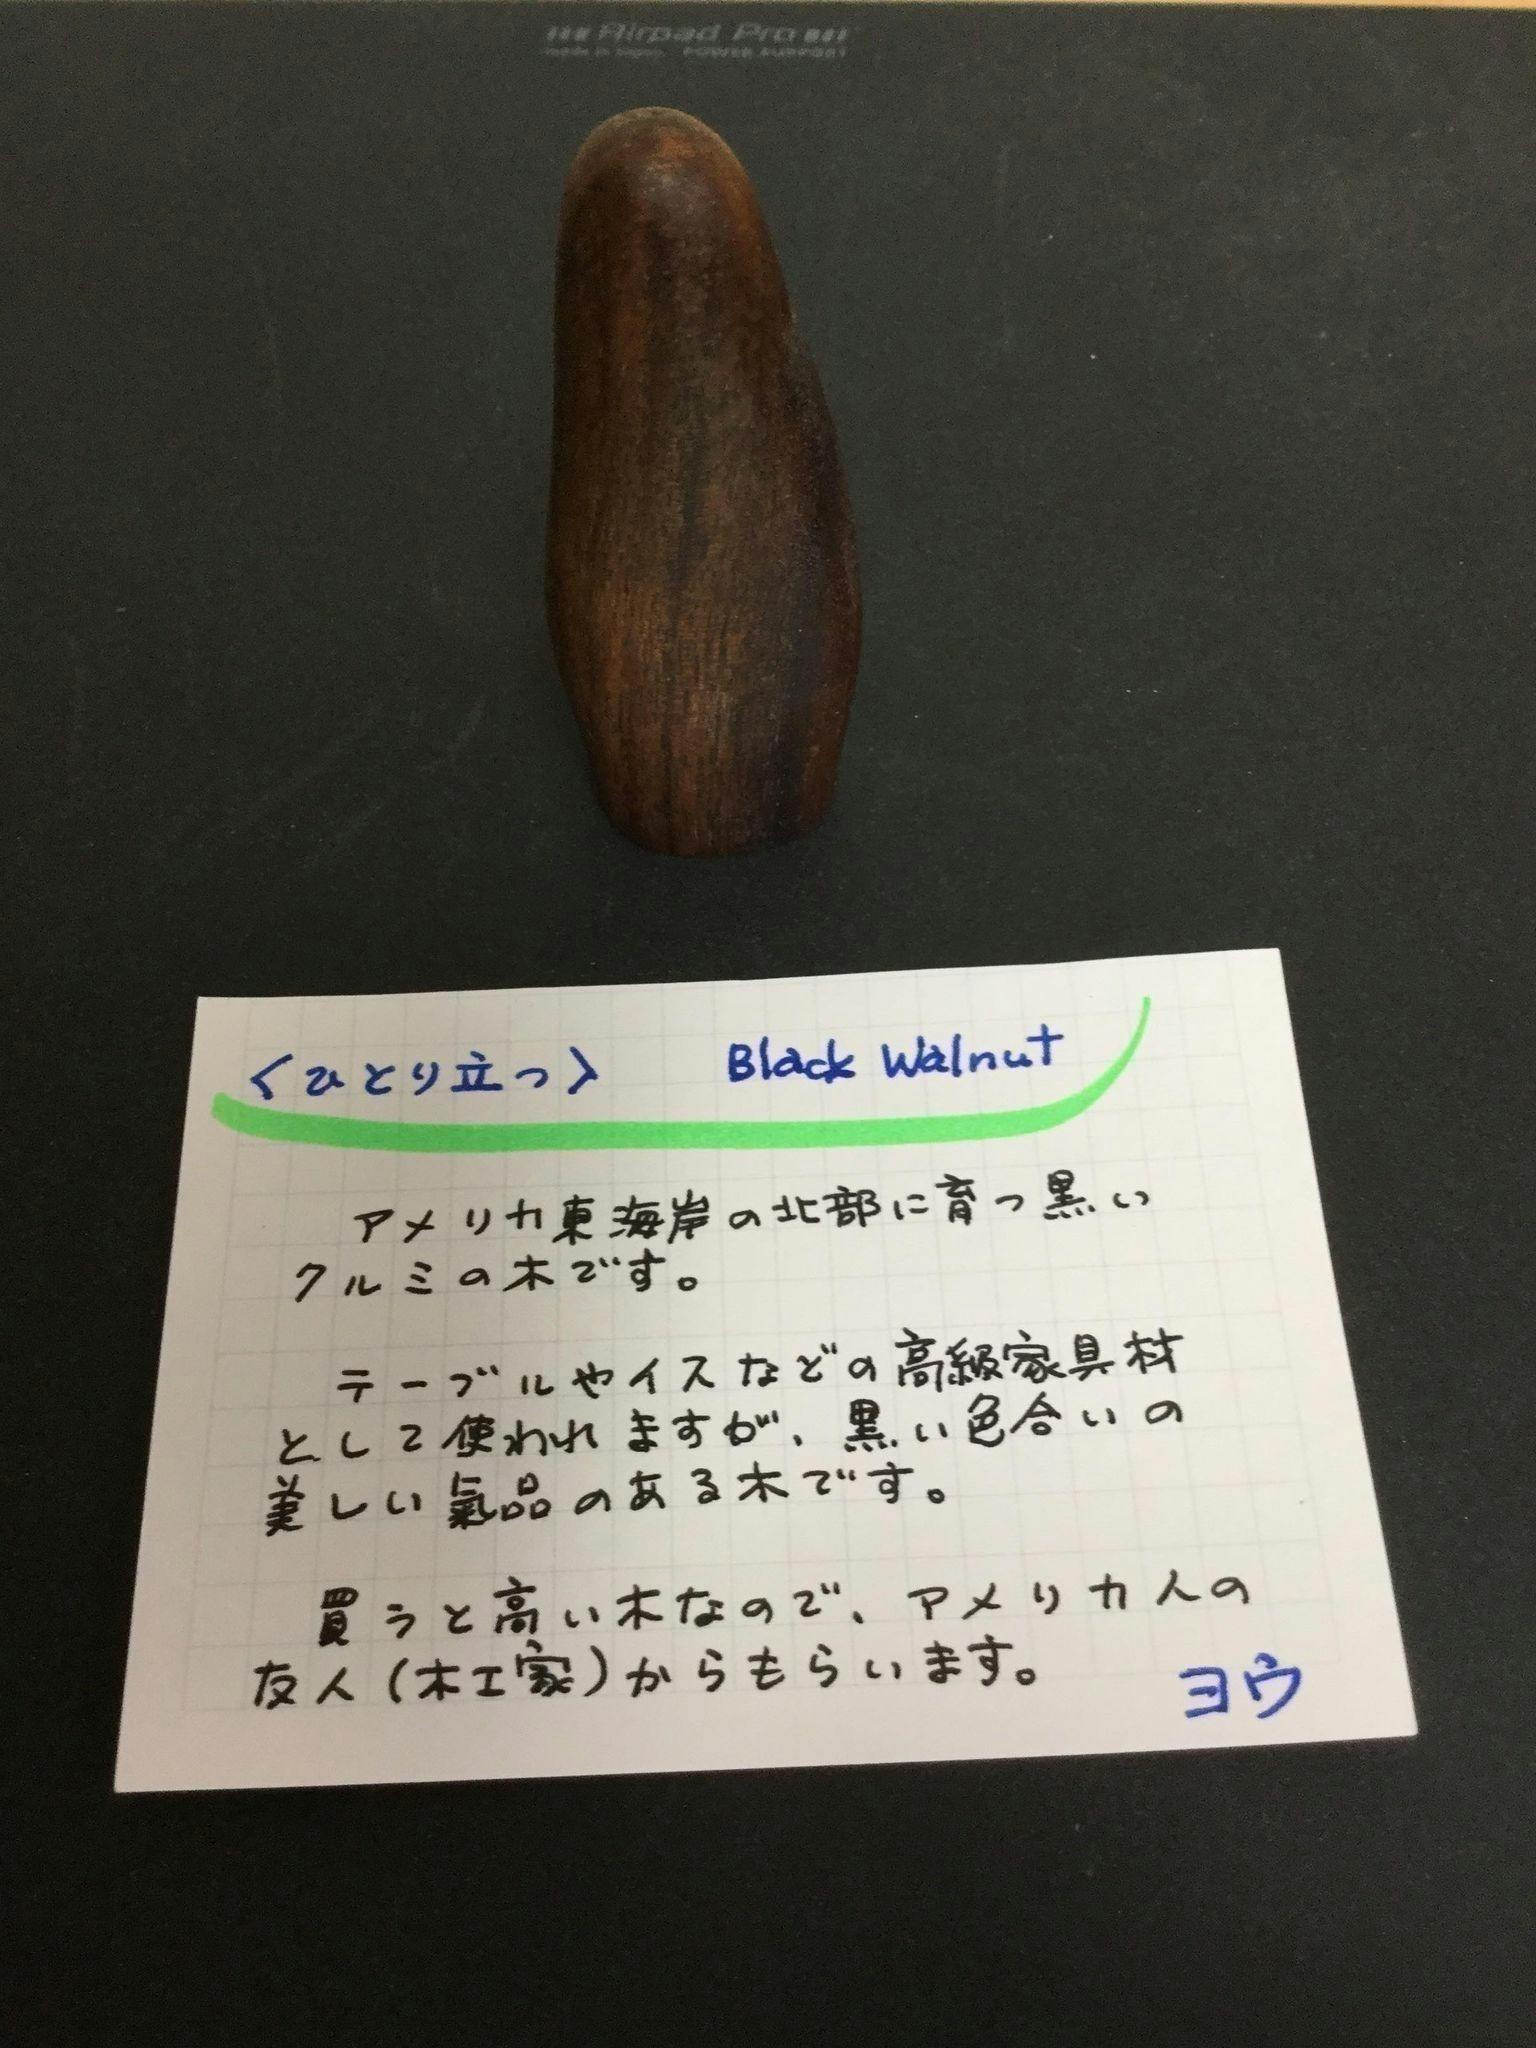 Airpad Pro
made in Japan POWER SUPPORT
<ひとり立つ> Black Walnut
アメリカ東海岸の北部に育つ黒い
クルミの木です。
テーブルやイスなどの高級家具材
として使われますが、黒い色合いの
美しい氣品のある木です。
買うと高い木なので、アメリカ人の
友人(木工家)からもらいます。
ヨウ